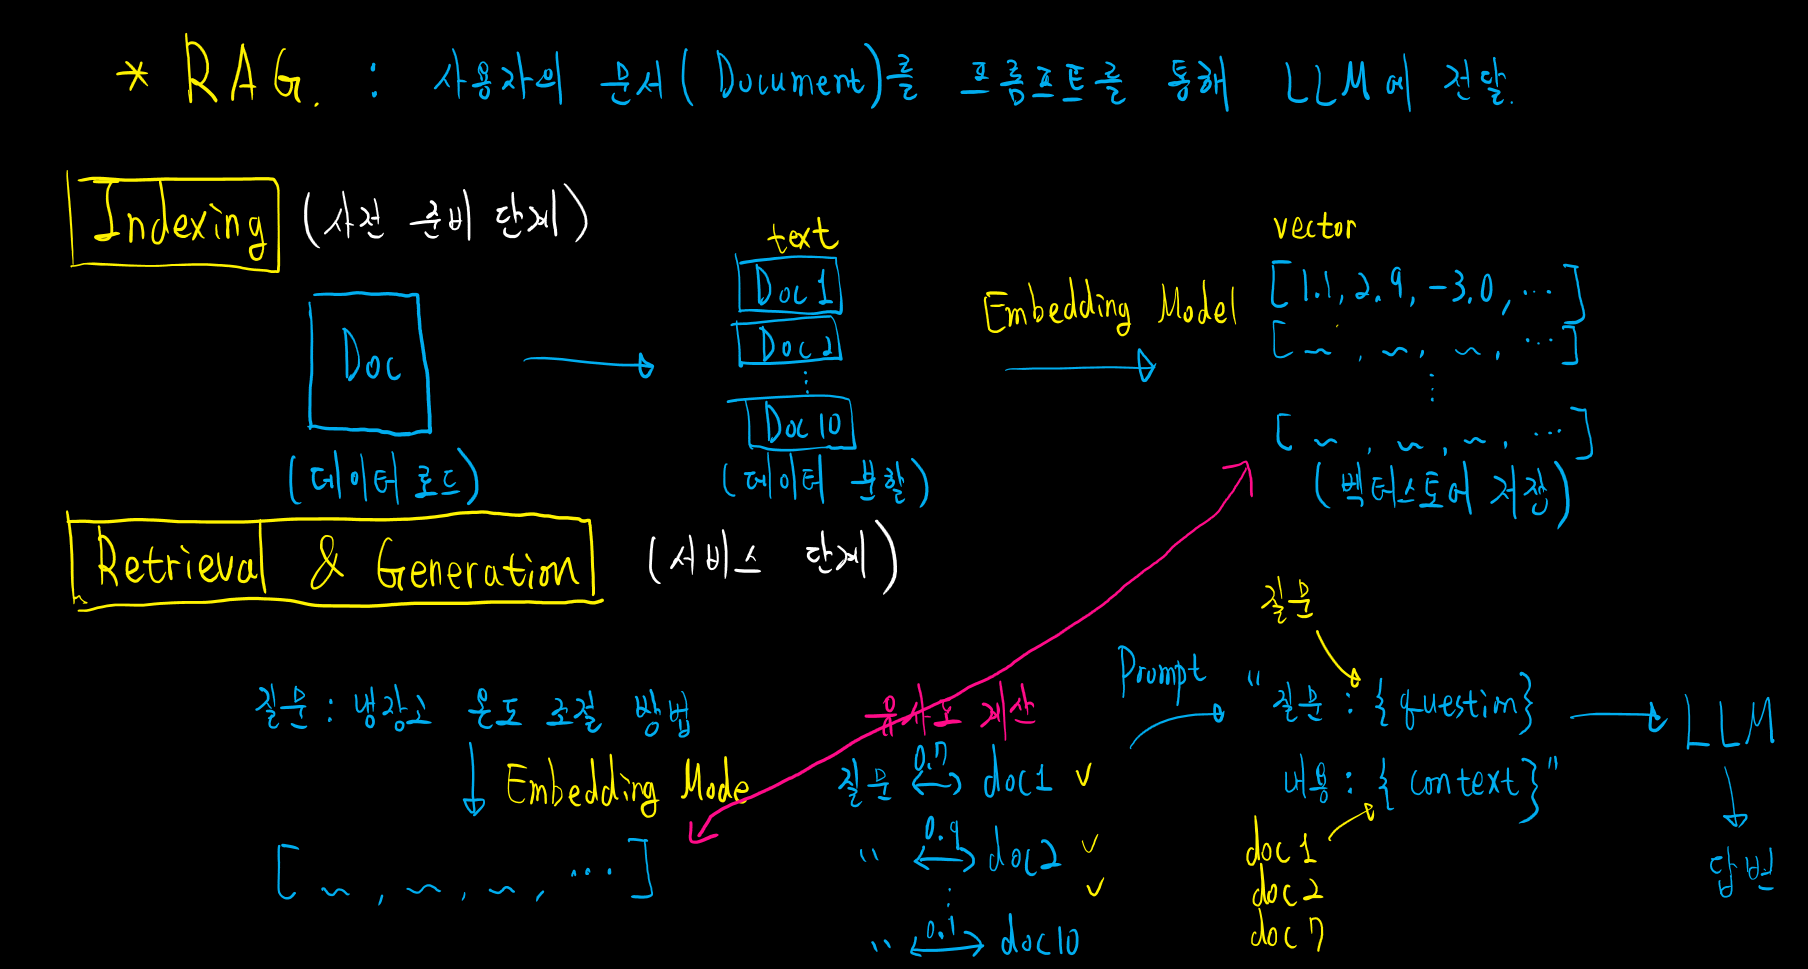 * RAG. : 사용자의 문서(Document)를 프롬프트를 통해 LLM에 전달.
Indexing (사전 준비 단계)
Doc
(데이터 로드)
text
Doc 1
Doc 2
⋮
Doc 10
(데이터 분할)
Embedding Model
vector
[1.1, 2.9, -3.0, ...]
[~, ~, ~, ...]
⋮
[~, ~, ~, ...]
(벡터스토어 저장)
Retrieval & Generation (서비스 단계)
질문 : 냉장고 온도 조절 방법
Embedding Mode
[~, ~, ~, ...]
유사도 계산
질문 0.7 doc1 ✓
" 0.9 doc2 ✓
⋮ ✓
" 0.1 doc10
Prompt
질문
"질문 : {question}
내용 : {context}"
doc 1
doc 2
doc 7
LLM
답변